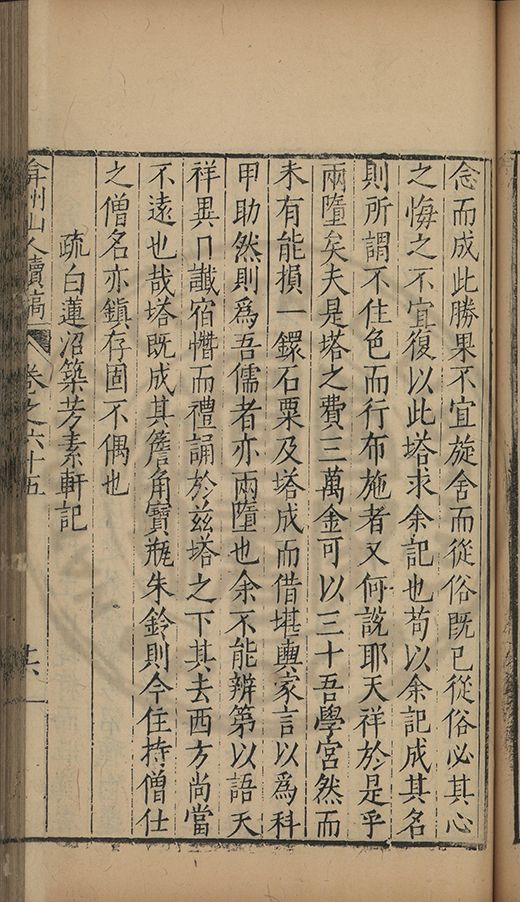 念而成此勝果不宜旋舍而從俗既已從俗必其心
之悔之不宜復以此塔求余記也茍以余記成其名
則所謂不住色而行布施者又何說耶天祥於是乎
兩墮矣夫是塔之費三萬金可以三十吾學宮然而
未有能損一鐶石粟及塔成而借堪輿家言以為科
甲助然則為吾儒者亦兩墮也余不能辨第以語天
祥異日讖宿懵而禮誦於茲塔之下其去西方尚當
不遠也哉塔既成其簷角寶瓶朱鈴則今住持僧仕
之僧名亦鎮存固不偶也
疏白蓮沼築芳素軒記
弇州山人續稿
卷之六十五